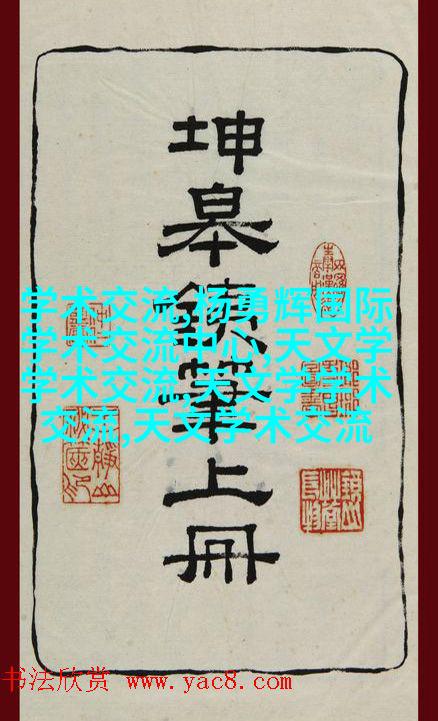 坤皋鐵筆上冊
学术交流,杨勇辉国际
学术交流中心,天文学
学术交流,天文学学术
交流,天文学术交流
书法欣赏 www.yac8.com